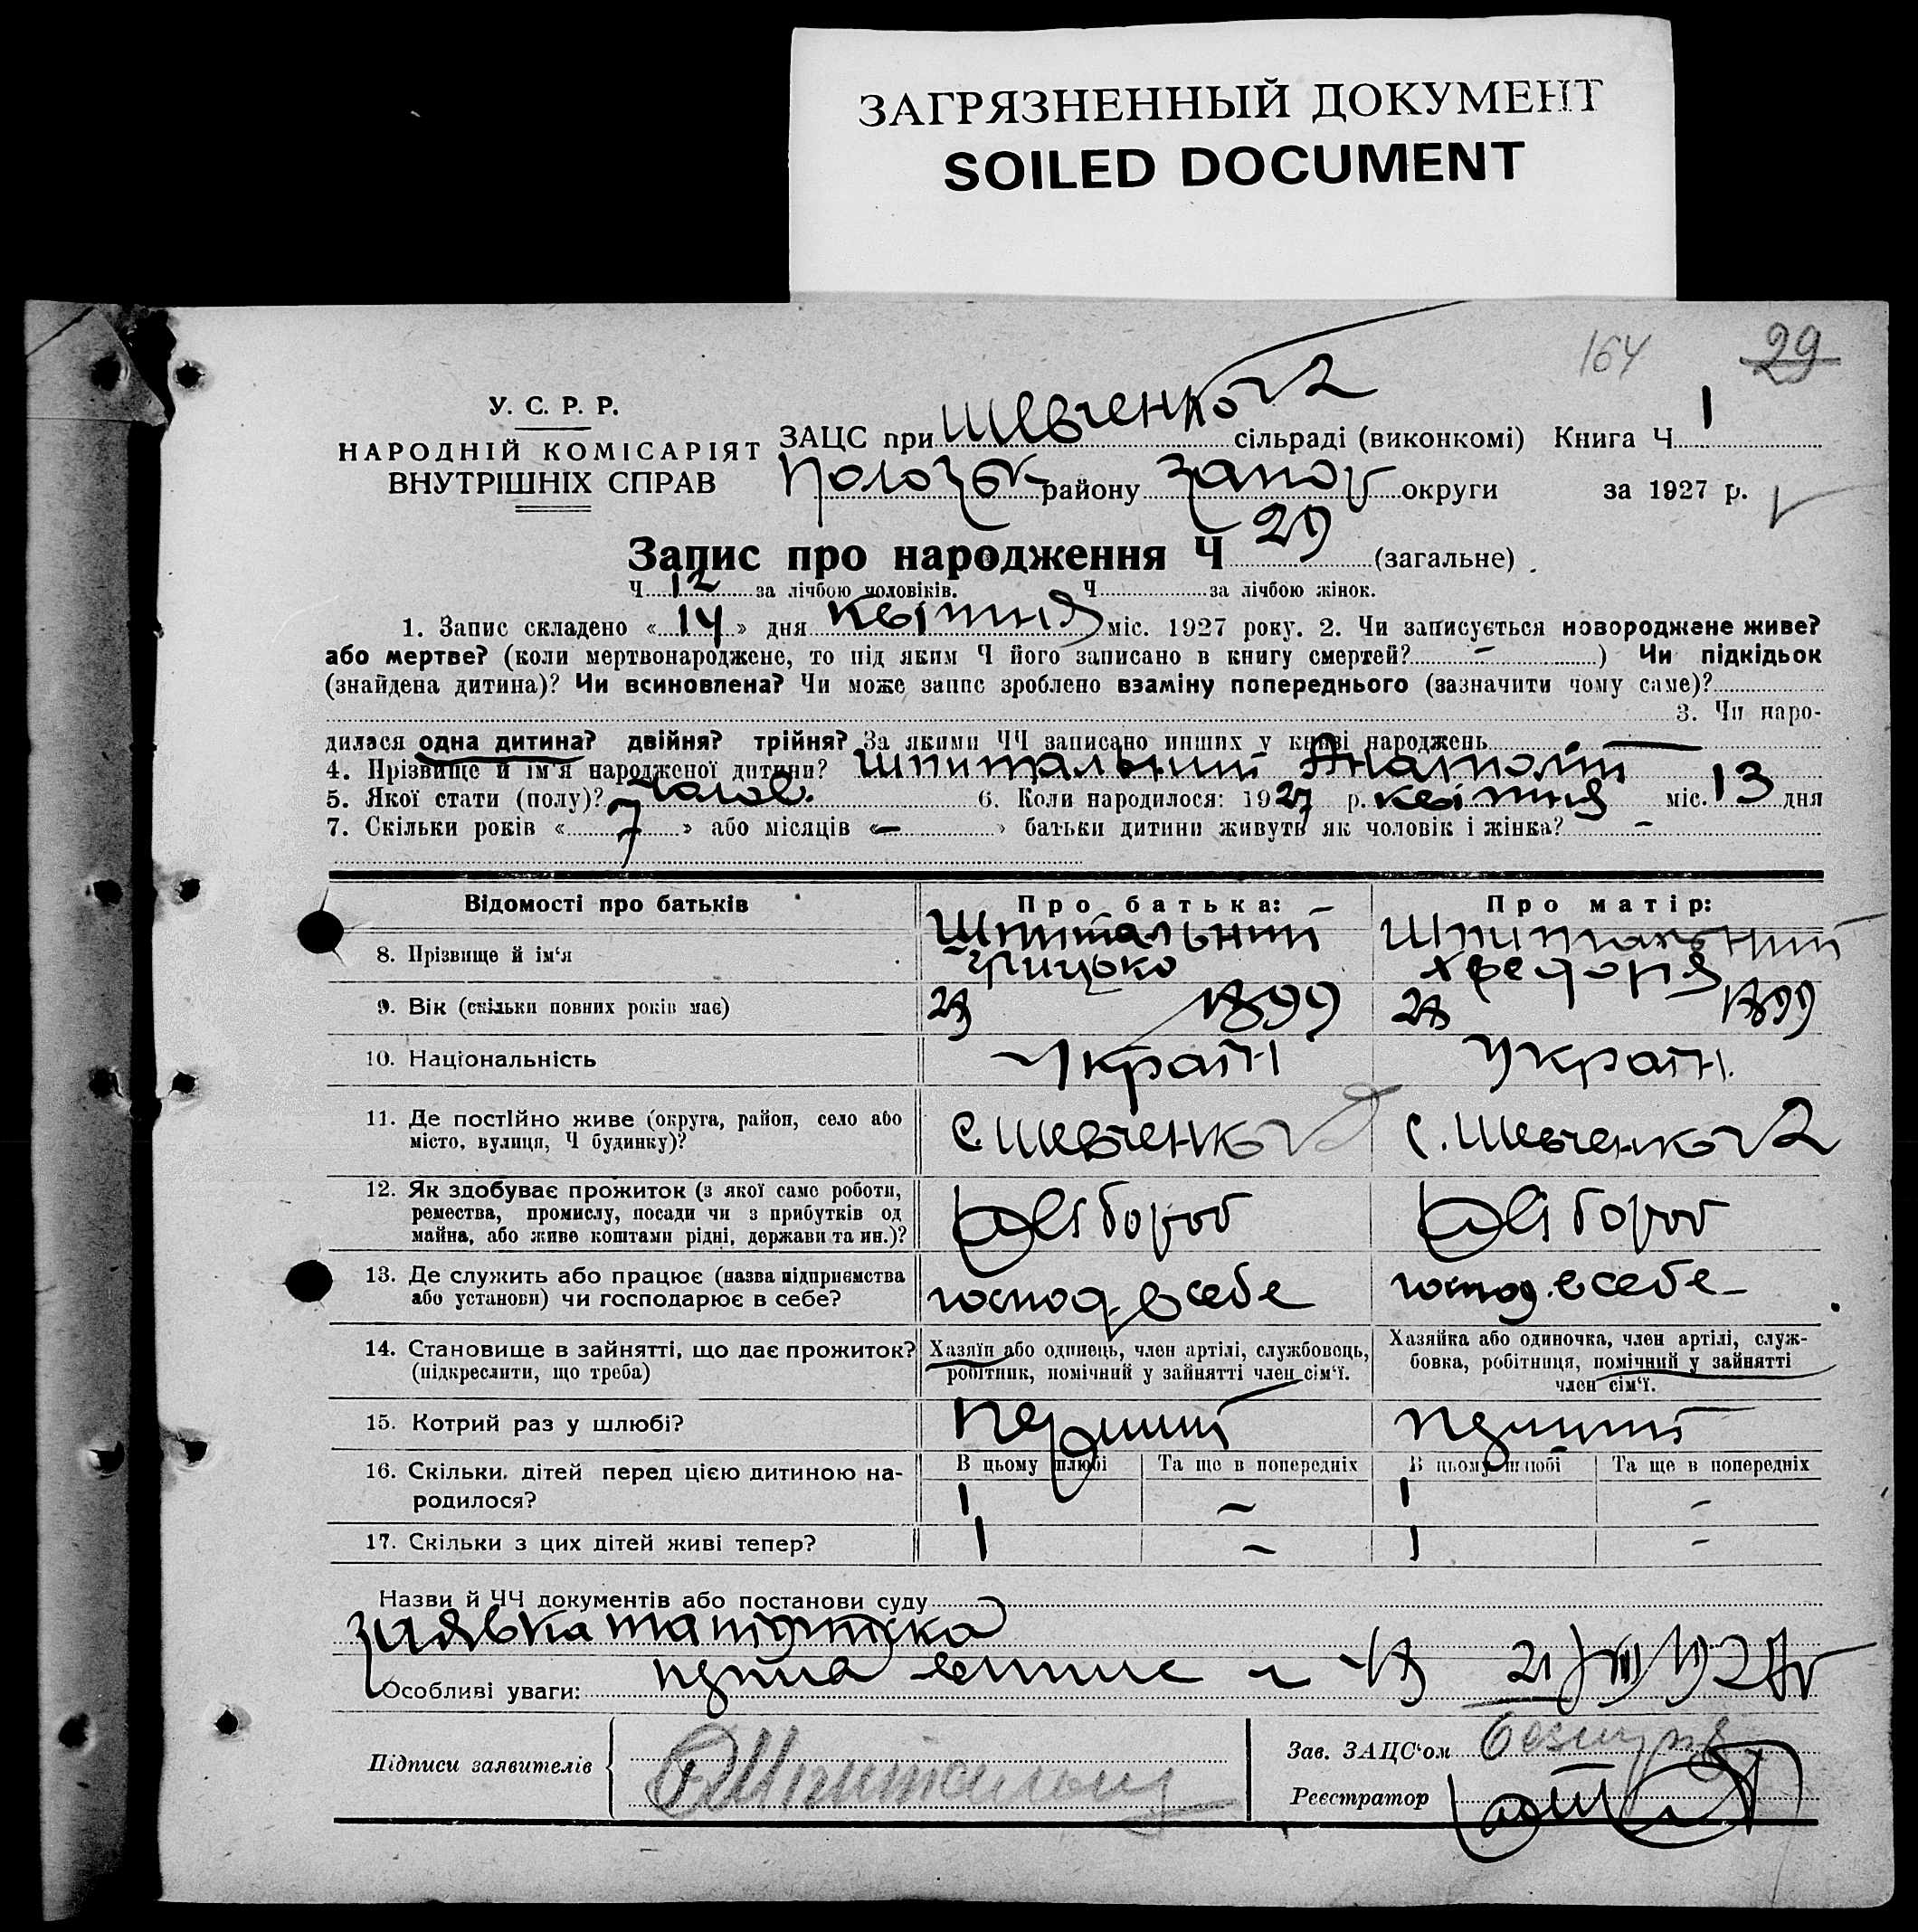 ЗАГРЯЗНЕННЫЙ ДОКУМЕНТ
SOILED DOCUMENT
164 29
У. С. Р. Р.
НАРОДНІЙ КОМІСАРІЯТ
ВНУТРІШНІХ СПРАВ
ЗАЦС при Шевченко № 2 сільраді (виконкомі) Книга Ч. 1
району Запор округи за 1927 р.
Запис про народження Ч 29 (загальне)
Ч 12 за лічбою чоловіків. Ч за лічбою жінок.
1. Запис складено « 14 » дня квітня міс. 1927 року. 2. Чи записується новороджене живе?
або мертве? (коли мертвонароджене, то під яким Ч його записано в книгу смертей? – ) Чи підкідьок
(знайдена дитина)? Чи всиновлена? Чи може запис зроблено взаміну попереднього (зазначити чому саме)?
3. Чи наро-
дилася одна дитина? двійня? трійня? За якими ЧЧ записано инших у книзі народжень —
4. Прізвище й ім'я народженої дитини? Шпитальний Анатолій
5. Якої стати (полу)? чолов. 6. Коли народилося: 1927 р. квітня міс. 13 дня
7. Скільки років « 7 » або місяців « – » батьки дитини живуть як чоловік і жінка? –
Відомості про батьків Про батька: Про матір:
8. Прізвище й ім'я Шпитальний Грицько Шпитальний
9. Вік (скільки повних років має) 1899 28 1899
10. Національність Україн Україн.
11. Де постійно живе (округа, район, село або
місто, вулиця, Ч будинку)? с. Шевченко № 2 с. Шевченко № 2
12. Як здобуває прожиток (з якої саме роботи,
ремества, промислу, посади чи з прибутків од
майна, або живе коштами рідні, держави та ин.)? хлібороб хлібороб
13. Де служить або працює (назва підприємства
або установи) чи господарює в себе? господ. в себе господ. в себе
14. Становище в зайнятті, що дає прожиток?
(підкреслити, що треба)
Хазяїн або одинець, член артілі, службовець,
робітник, помічний у зайнятті член сім'ї.
Хазяйка або одиночка, член артілі, служ-
бовка, робітниця, помічний у зайнятті
член сім'ї.
15. Котрий раз у шлюбі? Перший перший
16. Скільки дітей перед цією дитиною на-
родилося?
В цьому шлюбі Та ще в попередніх В цьому шлюбі Та ще в попередніх
1 – 1 –
17. Скільки з цих дітей живі тепер? 1 – 1 –
Назви й ЧЧ документів або постанови суду
заявка та
Особливі уваги:
Підписи заявителів Шпитальний
Зав. ЗАЦС'ом
Реєстратор